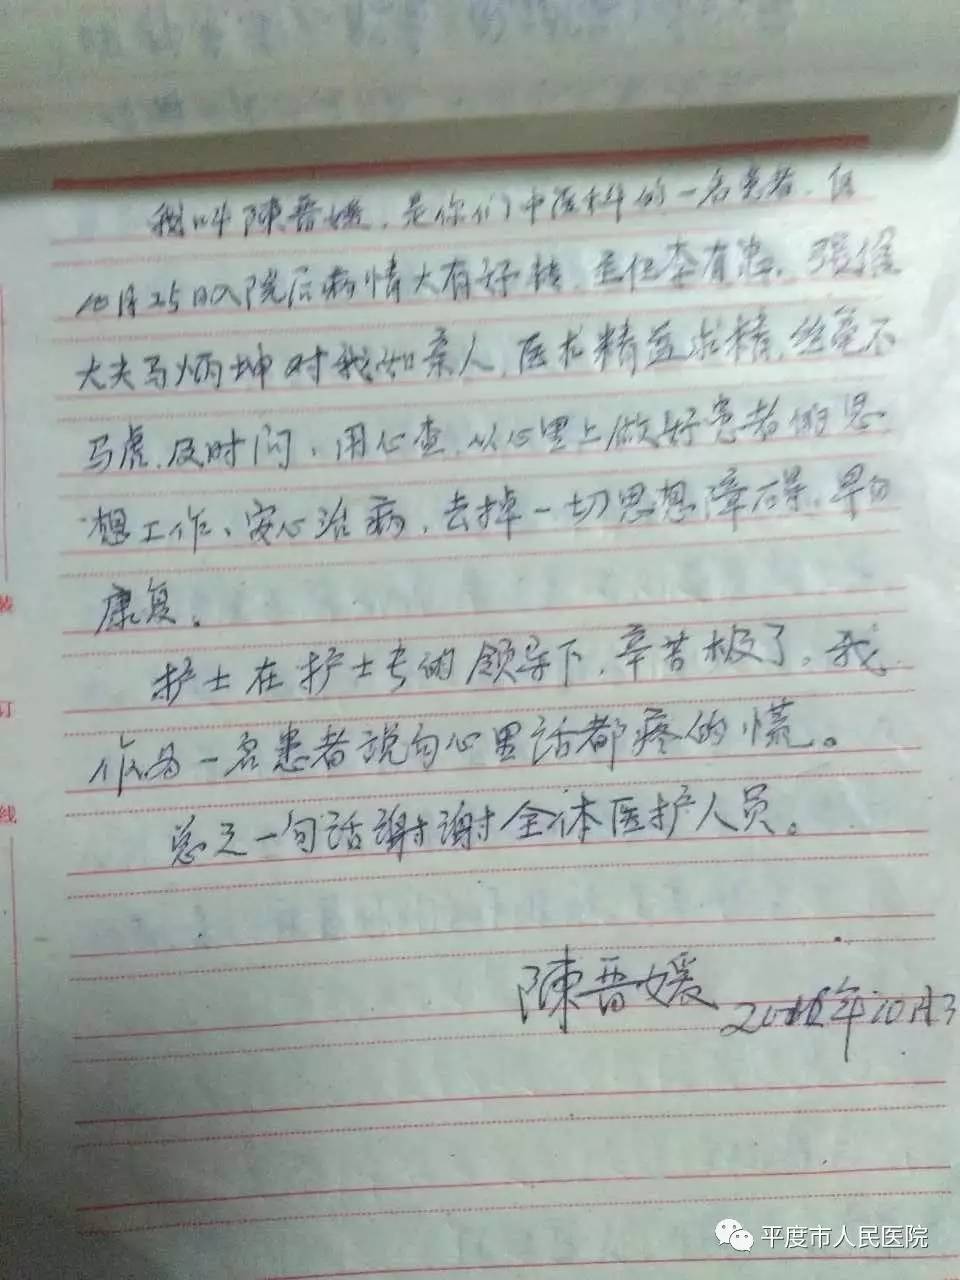 我叫陳晋媛，是你们中医科的一名患者，自
10月25日入院后病情大有好转，主任李有忠、张俊
大夫马炳坤对我如亲人，医术精益求精，丝毫不
马虎，及时问、用心查，从心里上做好患者的思
想工作、安心治病，去掉一切思想障碍，早日
康复。
护士在护士长的领导下，辛苦极了，我
作为一名患者说句心里话都疼的慌。
总之一句话谢谢全体医护人员。
陳晋媛 年10月3
装
订
线
平度市人民医院